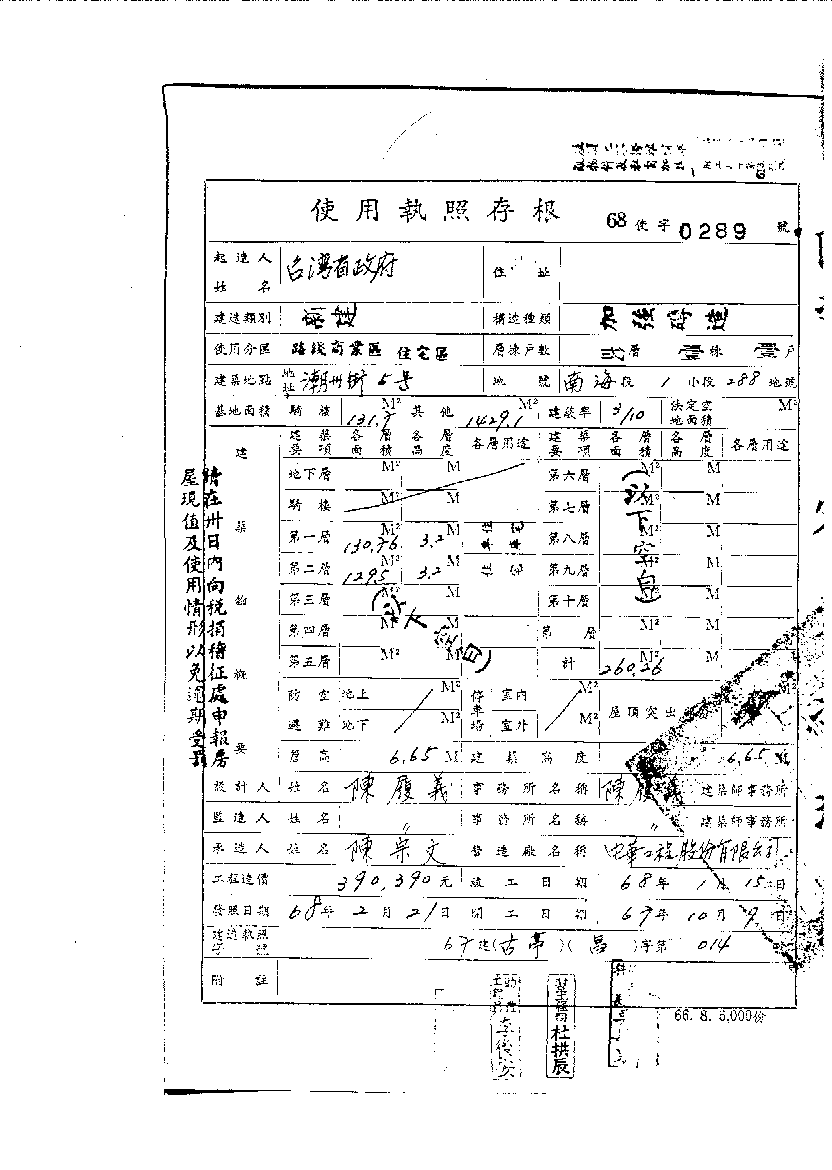 使用執照存根 68使字0289號
起造人姓名 台灣省政府 住址
建造類別 構造種類 加強磚造
使用分區 路線商業區 住宅區 層棟戶數 弍層 壹棟 壹戶
建築地點 地址 潮州街5号 地號 南海段1小段288地號
基地面積 騎樓 131.7 M² 其他 1429.1 M² 建蔽率 3/10 法定空地面積 M²
建築要項 各層面積 各層高度 各層用途 建築要項 各層面積 各層高度 各層用途
建築物概要
地下層 M² M 第六層 M² M
騎樓 M² M 第七層 M² M
第一層 130.76 M² 3.2 M 第八層 M² M
第二層 129.5 M² 3.2 M 第九層 M² M
第三層 M² M 第十層 M² M
第四層 M² M 第 層 M² M
第五層 M² M 計 260.26 M² M
(以下空白)
(以下空白)
防空避難 地上 M² 停車場 室內 M² 屋頂突出
地下 M² 室外 M²
簷高 6.65 M 建築高度 6.65 M
設計人 姓名 陳履義 事務所名稱 陳履義 建築師事務所
監造人 姓名 〃 事務所名稱 〃 建築師事務所
承造人 姓名 陳宗文 營造廠名稱 中華工程股份有限公司
工程造價 390,390元 竣工日期 68年1月15日
發照日期 68年2月21日 開工日期 67年10月9日
建造執照字號 67建(古亭)(昌)字第014
附註
請在卅日內向稅捐稽征處申報房
屋現值及使用情形以免逾期受罰
李俊安
杜拱辰
66.8.5,000份